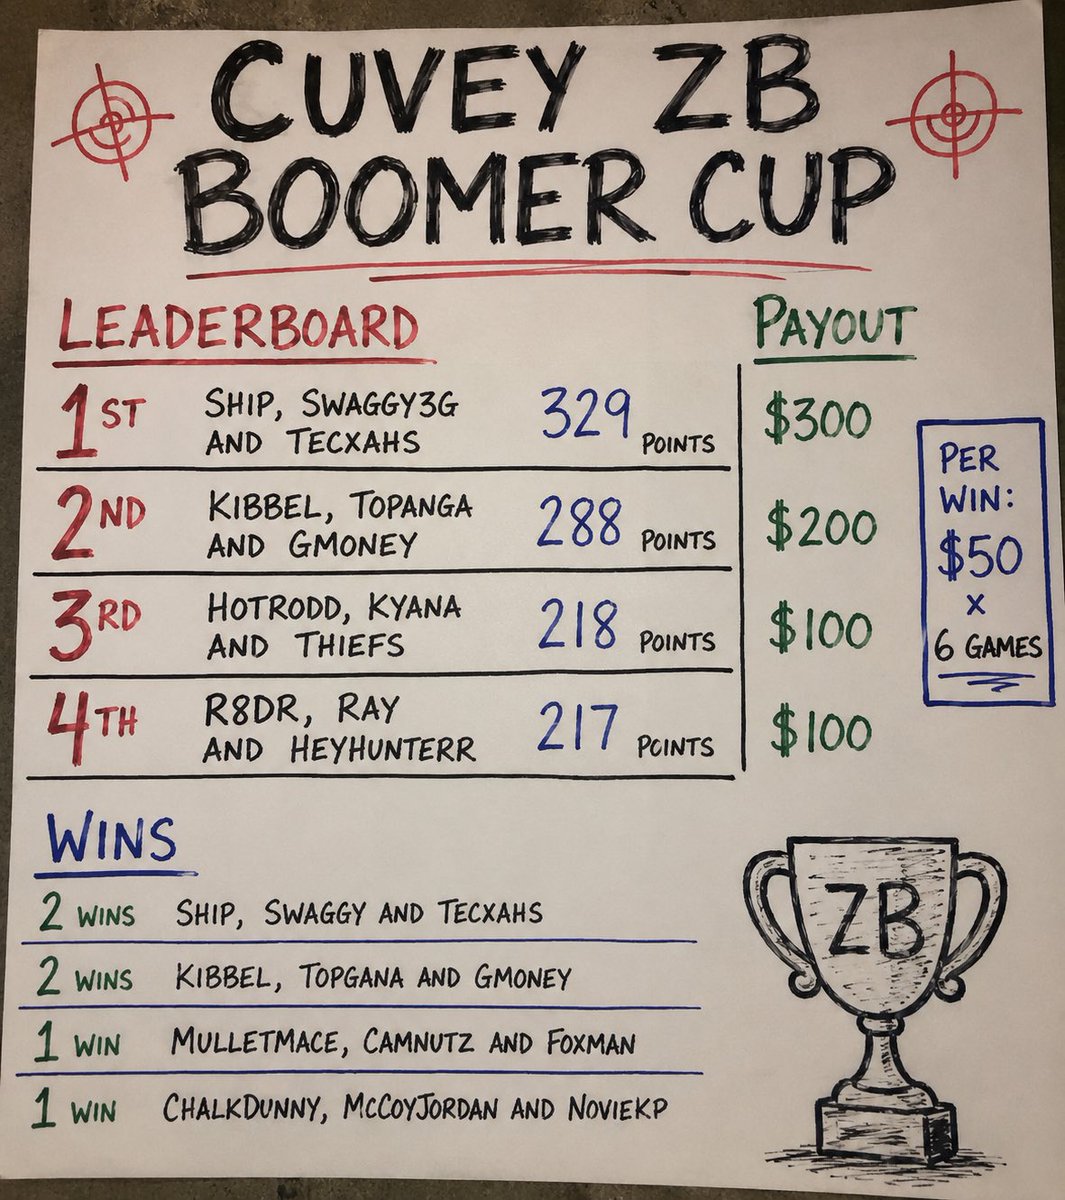 CUVEY ZB
BOOMER CUP
LEADERBOARD
PAYOUT
1ST SHIP, SWAGGY3G AND TECXAHS 329 POINTS $300
2ND KIBBEL, TOPANGA AND GMONEY 288 POINTS $200
3RD HOTRODD, KYANA AND THIEFS 218 POINTS $100
4TH R8DR, RAY AND HEYHUNTERR 217 POINTS $100
PER
WIN:
$50
x
6 GAMES
WINS
2 WINS SHIP, SWAGGY AND TECXAHS
2 WINS KIBBEL, TOPGANA AND GMONEY
1 WIN MULLETMACE, CAMNUTZ AND FOXMAN
1 WIN CHALKDUNNY, MCCOYJORDAN AND NOVIEKP
ZB